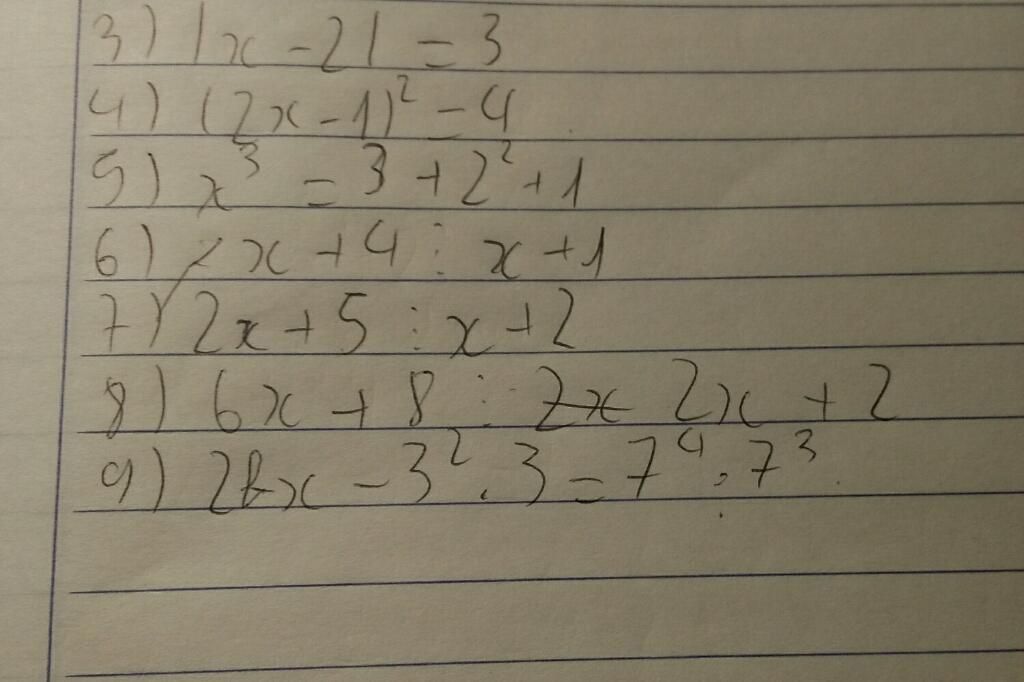 3) |x - 2| = 3
4) (2x - 1)² = 4
5) x³ = 3 + 2² + 1
6) x + 4 ⋮ x + 1
7) 2x + 5 ⋮ x + 2
8) 6x + 8 ⋮ 2x 2x + 2
9) x - 3² . 3 = 7⁴ : 7³